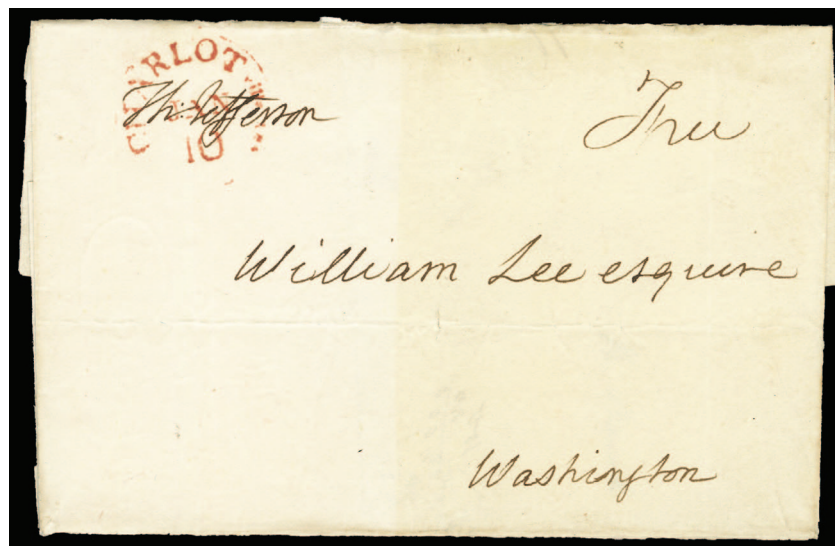 CHARLOT
Th: Jefferson
10
Free
William Lee esquire
Washington